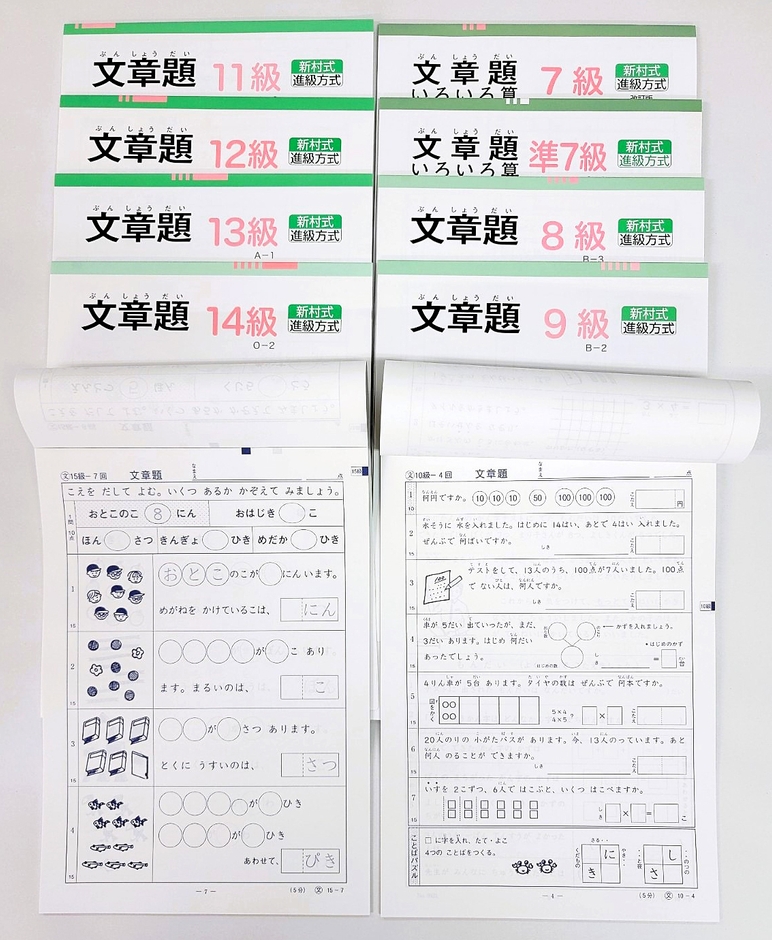 ぶんしょうだい
文章題 11級 新村式
進級方式
ぶんしょうだい
文章題 12級 新村式
進級方式
ぶんしょうだい
文章題 13級 新村式
進級方式
A-1
ぶんしょうだい
文章題 14級 新村式
進級方式
O-2
ぶんしょうだい
文章題 7級 新村式
進級方式
いろいろ算
ぶんしょうだい
文章題 準7級 新村式
進級方式
いろいろ算
ぶんしょうだい
文章題 8級 新村式
進級方式
B-3
ぶんしょうだい
文章題 9級 新村式
進級方式
B-2
文15級-7回 文章題 なまえ 点
こえを だして よむ。いくつ あるか かぞえて みましょう。
1問10点
おとこのこ 8 にん おはじき こ
ほん さつ きんぎょ ひき めだか ひき
1
おとこのこが にんいます。
めがねを かけているこは、 にん
15
2
が こ あり
ます。まるいのは、 こ
15
3
が さつ あります。
とくに うすいのは、 さつ
15
4
が ひき
が ひき
あわせて、 ぴき
15
-7- (5分) 文 15-7
文10級-4回 文章題 なまえ 点
1 何円ですか。 10 10 10 50 100 100 100 こたえ 円
10
2 水そうに 水を入れました。はじめに 14はい、あとで 4はい 入れました。
ぜんぶで 何ばいですか。 しき こたえ
15
3 テストをして、13人のうち、100点が7人いました。100点
で ない人は、何人ですか。
しき こたえ
15
10級
4 車が 5だい 出ていったが、まだ、
3だい あります。はじめ 何だい
あったでしょう。
かずを入れましょう。
はじめのかず
はじめの数
しき = 台
15
5 4りん車が 5台 あります。タイヤの数は ぜんぶで 何本ですか。
図をかく
5×4
4×5 ? × こたえ
15
6 20人のりの 小がたバスが あります。今、13人のっています。あと
何人 のることが できますか。
しき こたえ
15
7 いすを 2こずつ、6人で はこぶと、いくつ はこべますか。
しき × = こ
15
ことばパズル
□に字を入れ、たて・よこ
4つの ことばをつくる。
くだもの に き
し さ
-4- (5分) 文 10-4